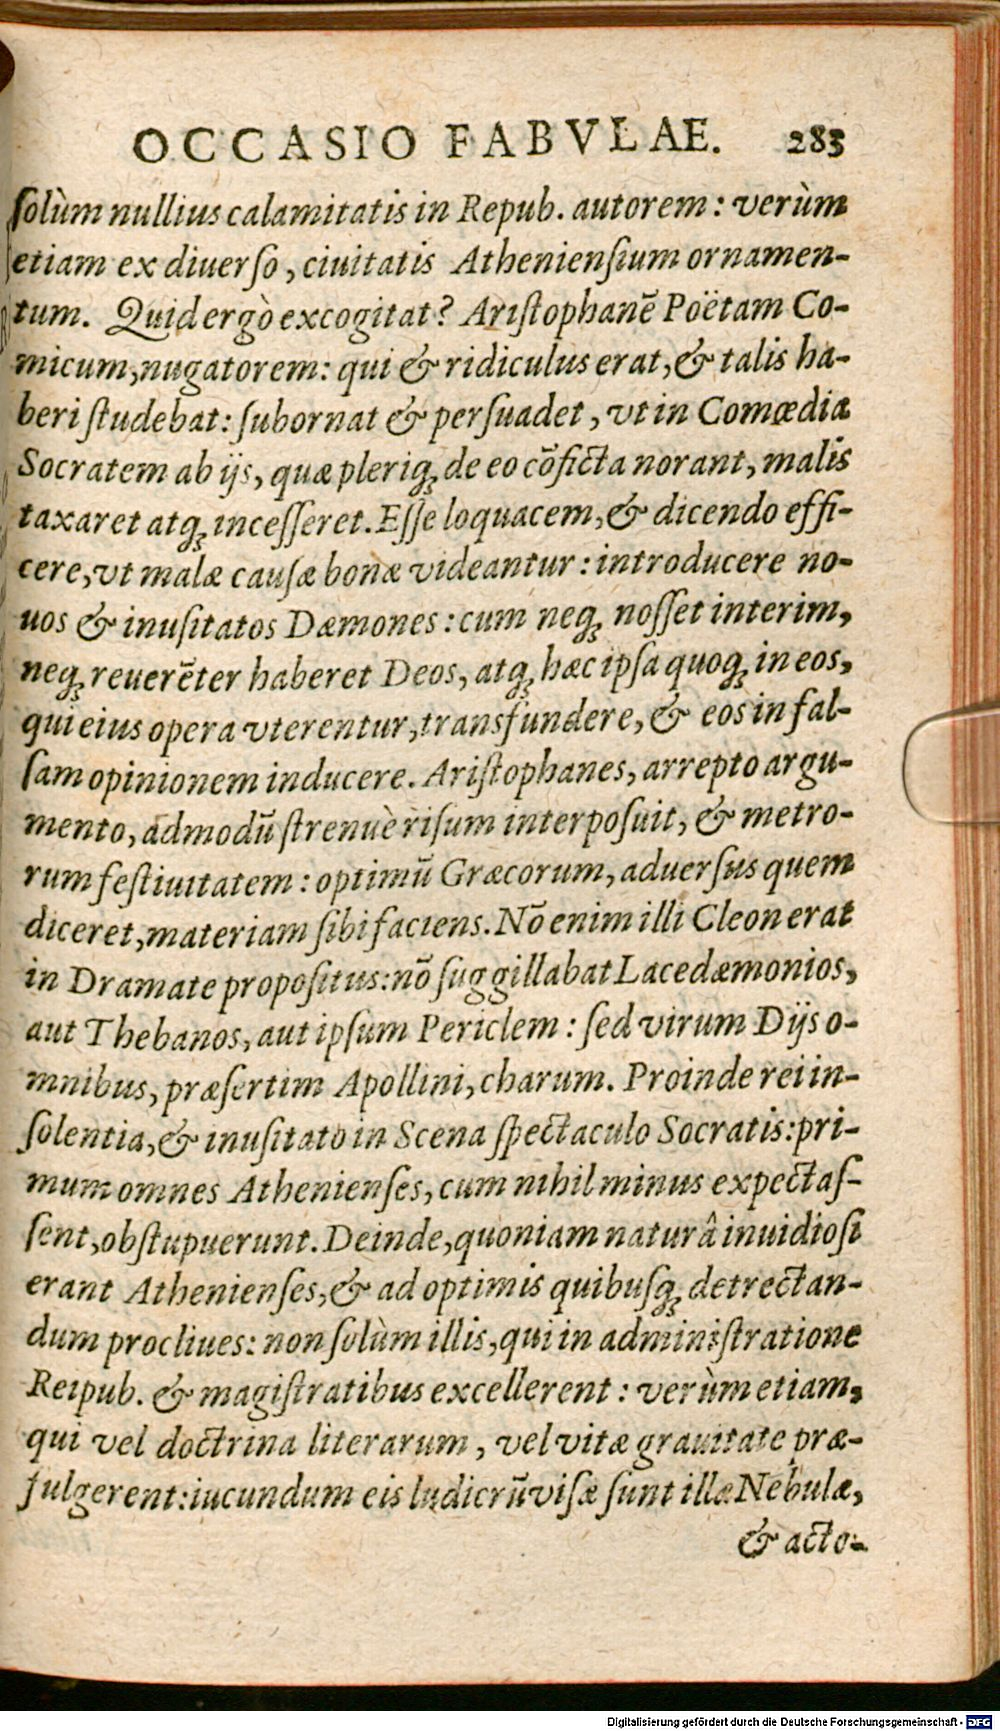 OCCASIO FABVLAE. 283
ſolùm nullius calamitatis in Repub. autorem : verùm
etiam ex diuerſo, ciuitatis Athenienſium ornamen-
tum. Quid ergò excogitat? Ariſtophanē Poëtam Co-
micum, nugatorem: qui & ridiculus erat, & talis ha-
beri ſtudebat: ſubornat & perſuadet, vt in Comœdia
Socratem ab ijs, quæ pleriq; de eo cōficta norant, malis
taxaret atq; inceſſeret. Eſſe loquacem, & dicendo effi-
cere, vt malæ cauſæ bonæ videantur : introducere no-
uos & inuſitatos Dæmones : cum neq; noſſet interim,
neq; reuerēter haberet Deos, atq; hæc ipſa quoq; in eos,
qui eius opera vterentur, transfundere, & eos in fal-
ſam opinionem inducere. Ariſtophanes, arrepto argu-
mento, admodū ſtrenuè riſum interpoſuit, & metro-
rum feſtiuitatem : optimū Græcorum, aduerſus quem
diceret, materiam ſibi faciens. Nō enim illi Cleon erat
in Dramate propoſitus: nō ſuggillabat Lacedæmonios,
aut Thebanos, aut ipſum Periclem : ſed virum Dijs o-
mnibus, præſertim Apollini, charum. Proinde rei in-
ſolentia, & inuſitato in Scena ſpectaculo Socratis: pri-
mum omnes Athenienſes, cum nihil minus expectaſ-
ſent, obſtupuerunt. Deinde, quoniam naturâ inuidioſi
erant Athenienſes, & ad optimis quibuſq; detrectan-
dum procliues: non ſolùm illis, qui in adminiſtratione
Reipub. & magiſtratibus excellerent : verùm etiam,
qui vel doctrina literarum, vel vitæ grauitate præ-
fulgerent: iucundum eis ludicrū viſæ ſunt illæ Nebulæ,
& acto-
Digitalisierung gefördert durch die Deutsche Forschungsgemeinschaft - DFG